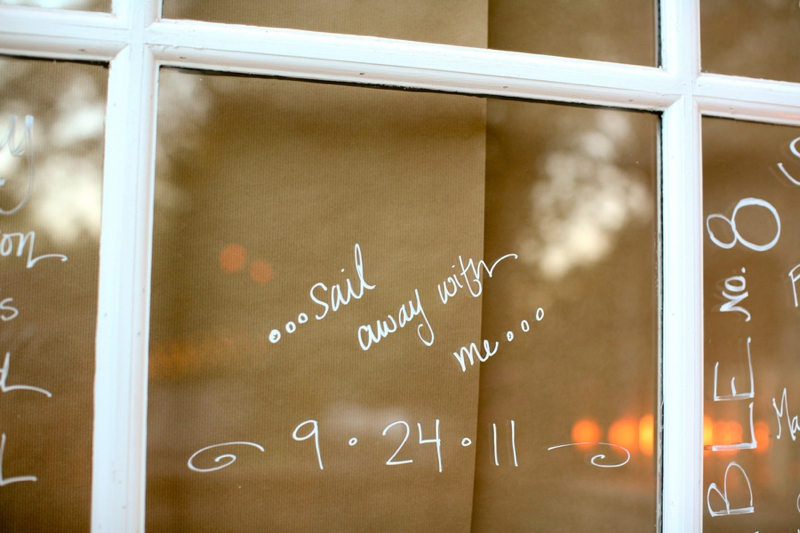 ...sail
away with
me...
9 • 24 • 11
BLE No. 8